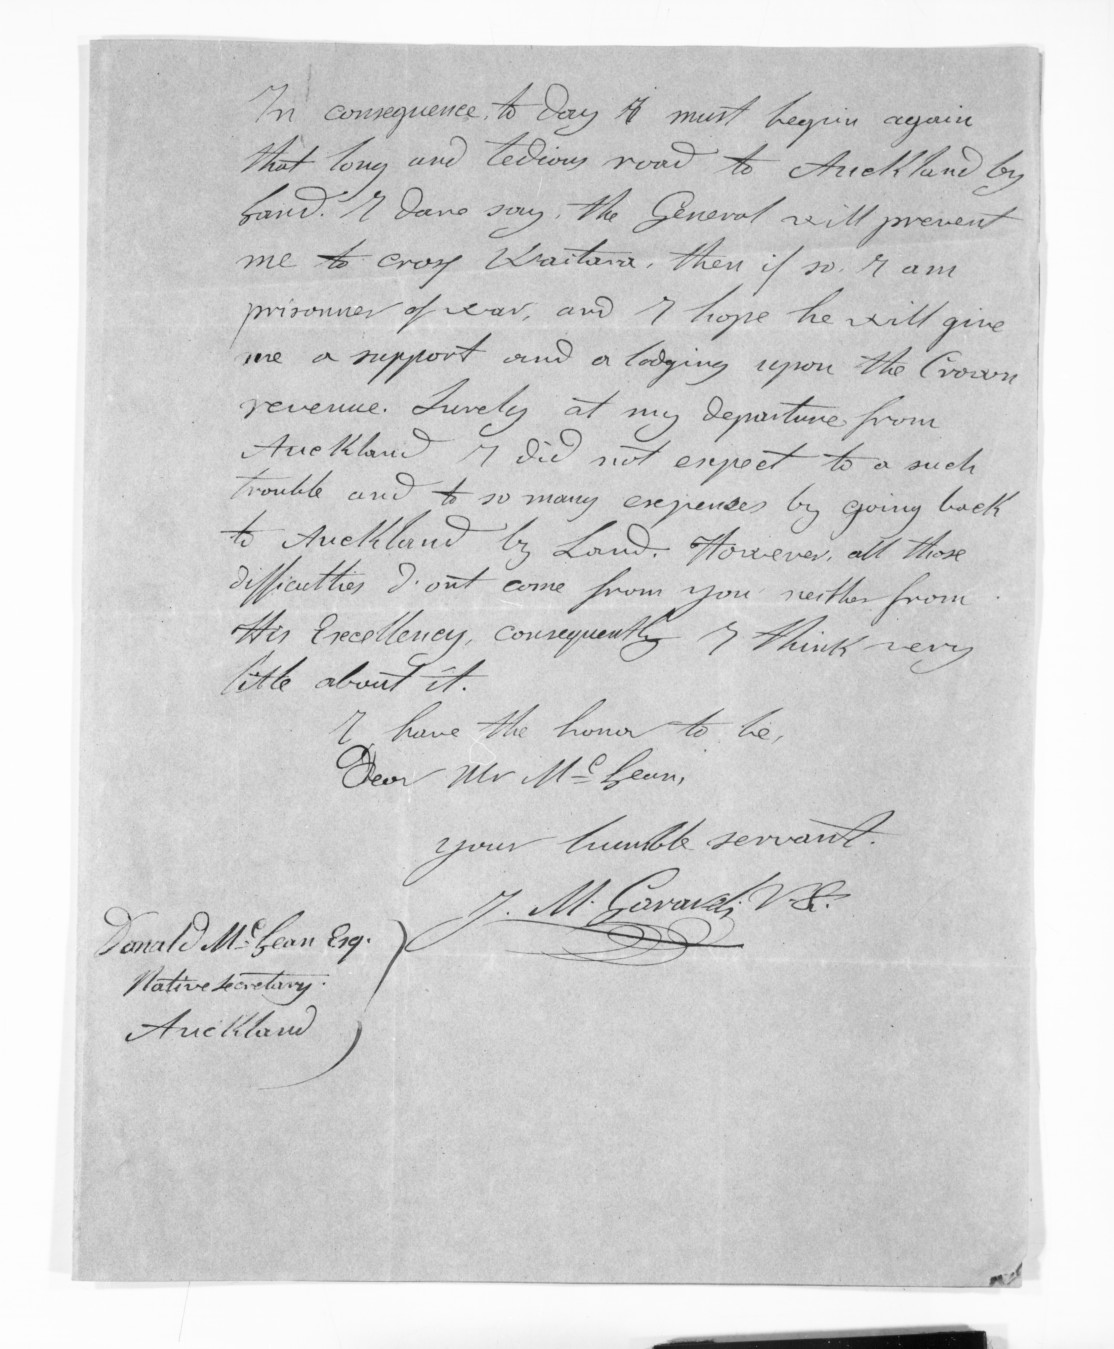 In consequence, to day I must begin again
that long and tedious road to Auckland by
Land. I dare say, the General will prevent
me to cross Waitara, then if so, I am
prisonner of war, and I hope he will give
me a support and a lodging upon the Crown
revenue. Surely at my departure from
Auckland I did not expect to a such
trouble and to so many expenses by going back
to Auckland by Land. However, all those
difficulties d'ont come from you neither from
His Excellency, consequently I think very
little about it.
I have the honor to be,
Dear Mr McLean,
your humble servant.
J. M. Garavel
Donald McLean Esq.
Native secretary.
Auckland